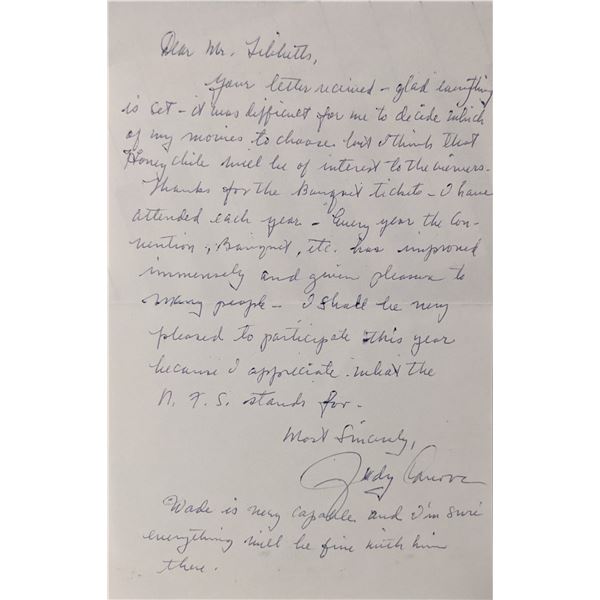 Dear Mr. Tibbetts,
Your letter recieved - glad everything
is set - it was difficult for me to decide which
of my movies to choose but I think that
Honeychile will be of interest to the viewers -
Thanks for the Banquet tickets - I have
attended each year - Every year the Con-
vention, Banquet, etc. has improved
immensely and given pleasure to
many people - I shall be very
pleased to participate this year
because I appreciate what the
N. F. S. stands for -
Most Sincerely,
Judy Canova
Wade is very capable and I'm sure
everything will be fine with him
there.